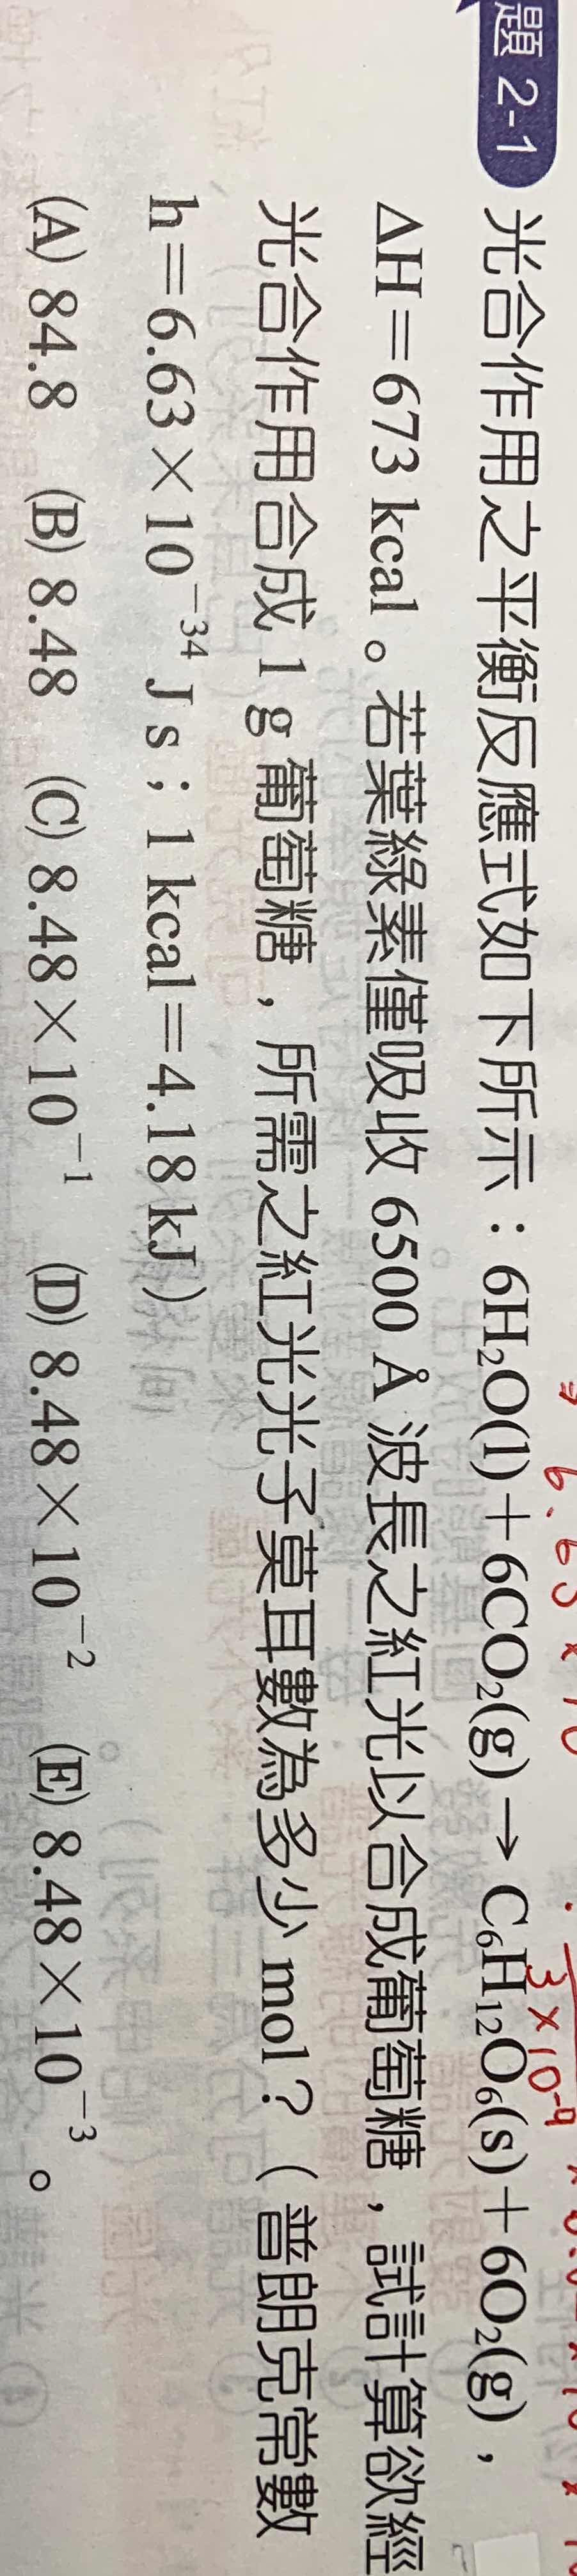 題 2-1
光合作用之平衡反應式如下所示：6H₂O(l)＋6CO₂(g)→C₆H₁₂O₆(s)＋6O₂(g)，
ΔH＝673 kcal。若葉綠素僅吸收 6500 Å 波長之紅光以合成葡萄糖，試計算欲經
光合作用合成 1 g 葡萄糖，所需之紅光光子莫耳數為多少 mol？（普朗克常數
h＝6.63×10⁻³⁴ J s；1 kcal＝4.18 kJ）
(A) 84.8 (B) 8.48 (C) 8.48×10⁻¹ (D) 8.48×10⁻² (E) 8.48×10⁻³。